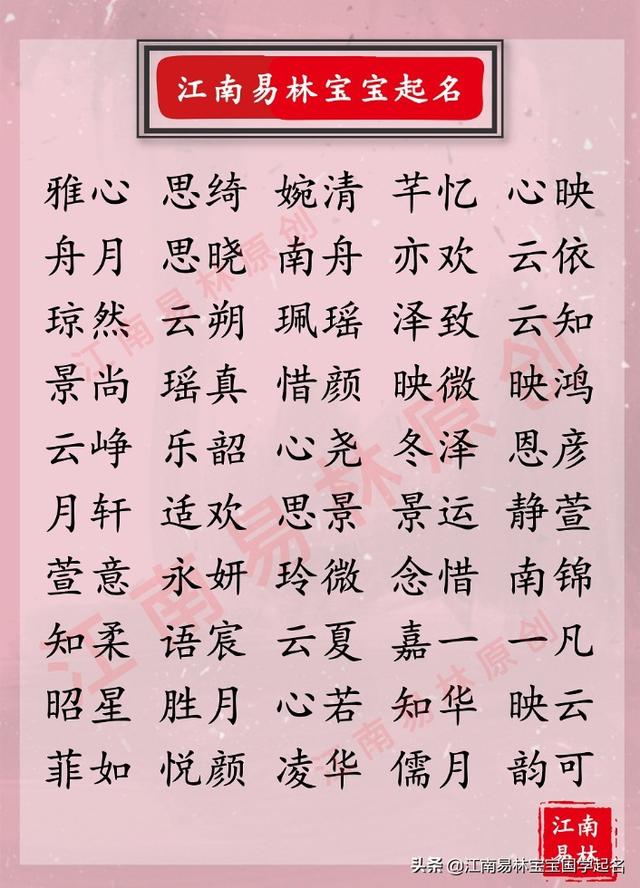 江南易林宝宝起名
雅心 思绮 婉清 芊忆 心映
舟月 思晓 南舟 亦欢 云依
琼然 云朔 珮瑶 泽致 云知
景尚 瑶真 惜颜 映微 映鸿
云峥 乐韶 心尧 冬泽 恩彦
月轩 适欢 思景 景运 静萱
萱意 永妍 玲微 念惜 南锦
知柔 语宸 云夏 嘉一 一凡
昭星 胜月 心若 知华 映云
菲如 悦颜 凌华 儒月 韵可
江南易林原创
江南易林原创
江南易林原创
江南
易林
头条 @江南易林宝宝国学起名